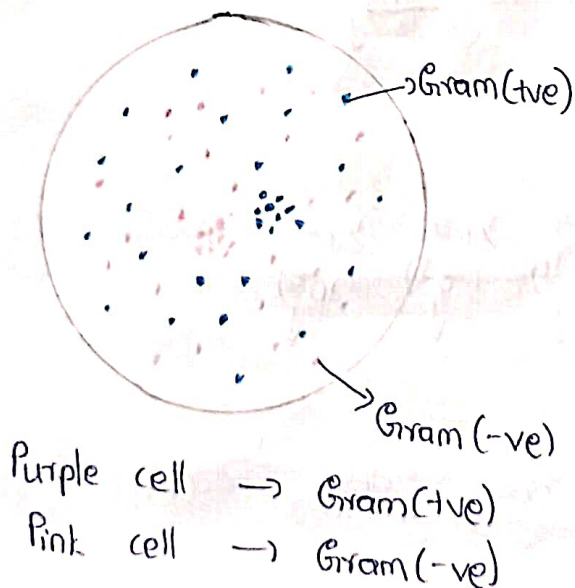 Gram(+ve)
Gram(-ve)
Purple cell → Gram(+ve)
Pink cell → Gram(-ve)